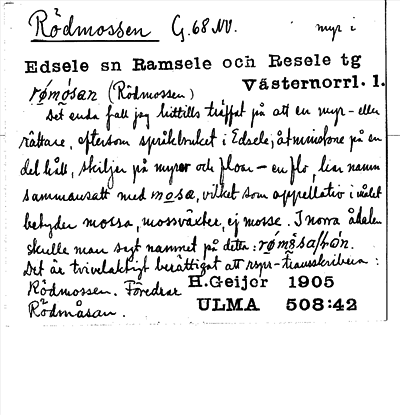 Rödmossen G.68 NV. myr i
Edsele sn Ramsele och Resele tg
Västernorrl. l.
rømósan (Rödmossen)
Det enda fall jag hittills träffat på att en myr – eller
rättare, eftersom språkbruket i Edsele, åtminstone på en
del håll, skiljer på myror och floar – en flo, har namn
sammansatt med mosa, vilket som appellativ i målet
betyder mossa, mossväxter, ej mosse. I norra ådalen
skulle man sagt namnet på detta:
Det är tvivelaktigt berättigat att rspr-transskribera:
Rödmossen. Föredrar
H.Geijer 1905
Rödmåsan.
ULMA 508:42